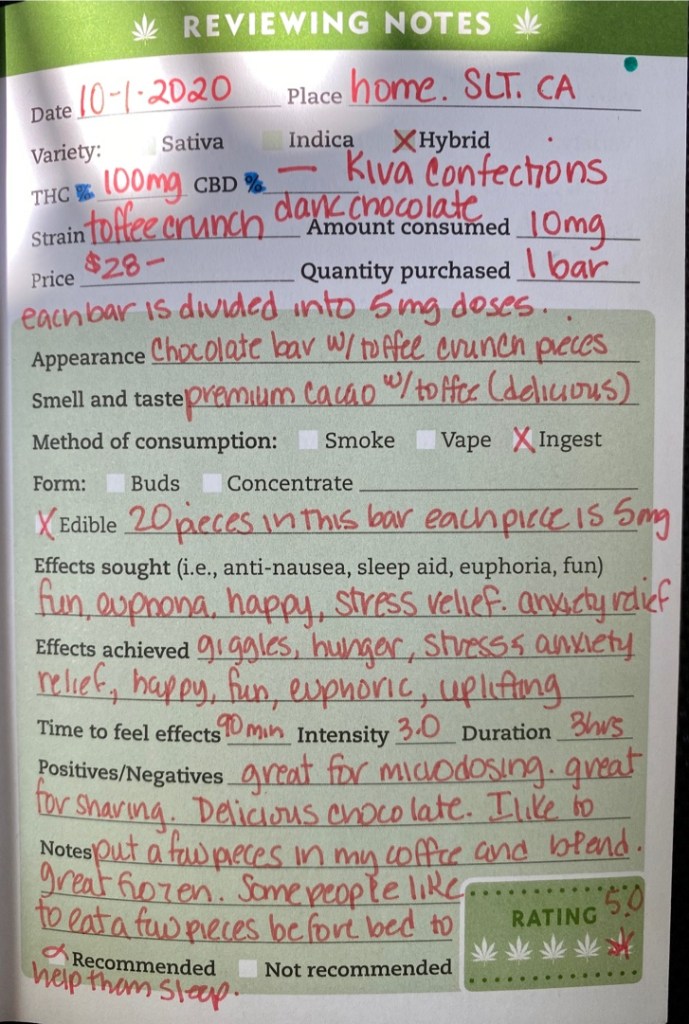 REVIEWING NOTES
Date 10-1-2020 Place home. SLT. CA
Variety: Sativa Indica X Hybrid
THC % 100mg CBD % — Kiva Confections
Strain toffee crunch dark chocolate Amount consumed 10mg
Price $28— Quantity purchased 1 bar
each bar is divided into 5mg doses.
Appearance Chocolate bar w/ toffee crunch pieces
Smell and taste premium cacao w/ toffee (delicious)
Method of consumption: Smoke Vape X Ingest
Form: Buds Concentrate
X Edible 20 pieces in this bar each piece is 5mg
Effects sought (i.e., anti-nausea, sleep aid, euphoria, fun)
fun, euphoria, happy, stress relief. anxiety relief
Effects achieved giggles, hunger, stress & anxiety
relief, happy, fun, euphoric, uplifting
Time to feel effects 90 min Intensity 3.0 Duration 3hrs
Positives/Negatives great for microdosing. great
for sharing. Delicious chocolate. I like to
Notes put a few pieces in my coffee and blend.
great frozen. Some people like
to eat a few pieces before bed to
RATING 5.0
Recommended Not recommended
help them sleep.